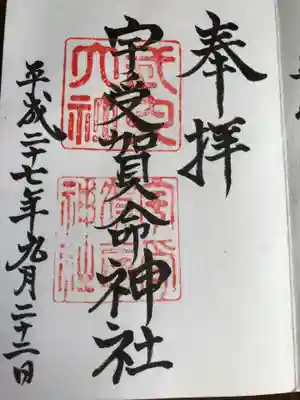 奉拝
宇受賀命神社
平成二十七年九月二十二日